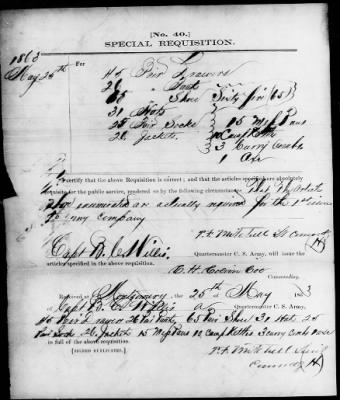 [No. 40.]
SPECIAL REQUISITION.
1863
May 25th For
45 Pair Drawers
26 " Pants
65 " Shoes Sixty five (65)
31 Hats 15 Mess Pans
25 Pair Socks 12 Camp Kettles
26 Jackets 3 Curry Combs
1 Axe
I certify that the above Requisition is correct; and that the articles specified are absolutely
requisite for the public service, rendered so by the following circumstances: That the Articles
enumerated are actually required for the
my company
P. F. Mitchell
Capt B. C. Quartermaster C. S. Army, will issue the
articles specified in the above requisition.
Commanding.
Received at Montgomery the 25th of May 1863
of Capt B. C. Quartermaster C. S. Army,
45 Pair Drawers 26 Pair Pants 65 Pair Shoes 31 Hats 25
Pair Socks 26 Jackets 15 Mess Pans 12 Camp Kettles 3 curry combs
in full of the above requisition.
P. F. Mitchell
[SIGNED DUPLICATES.]